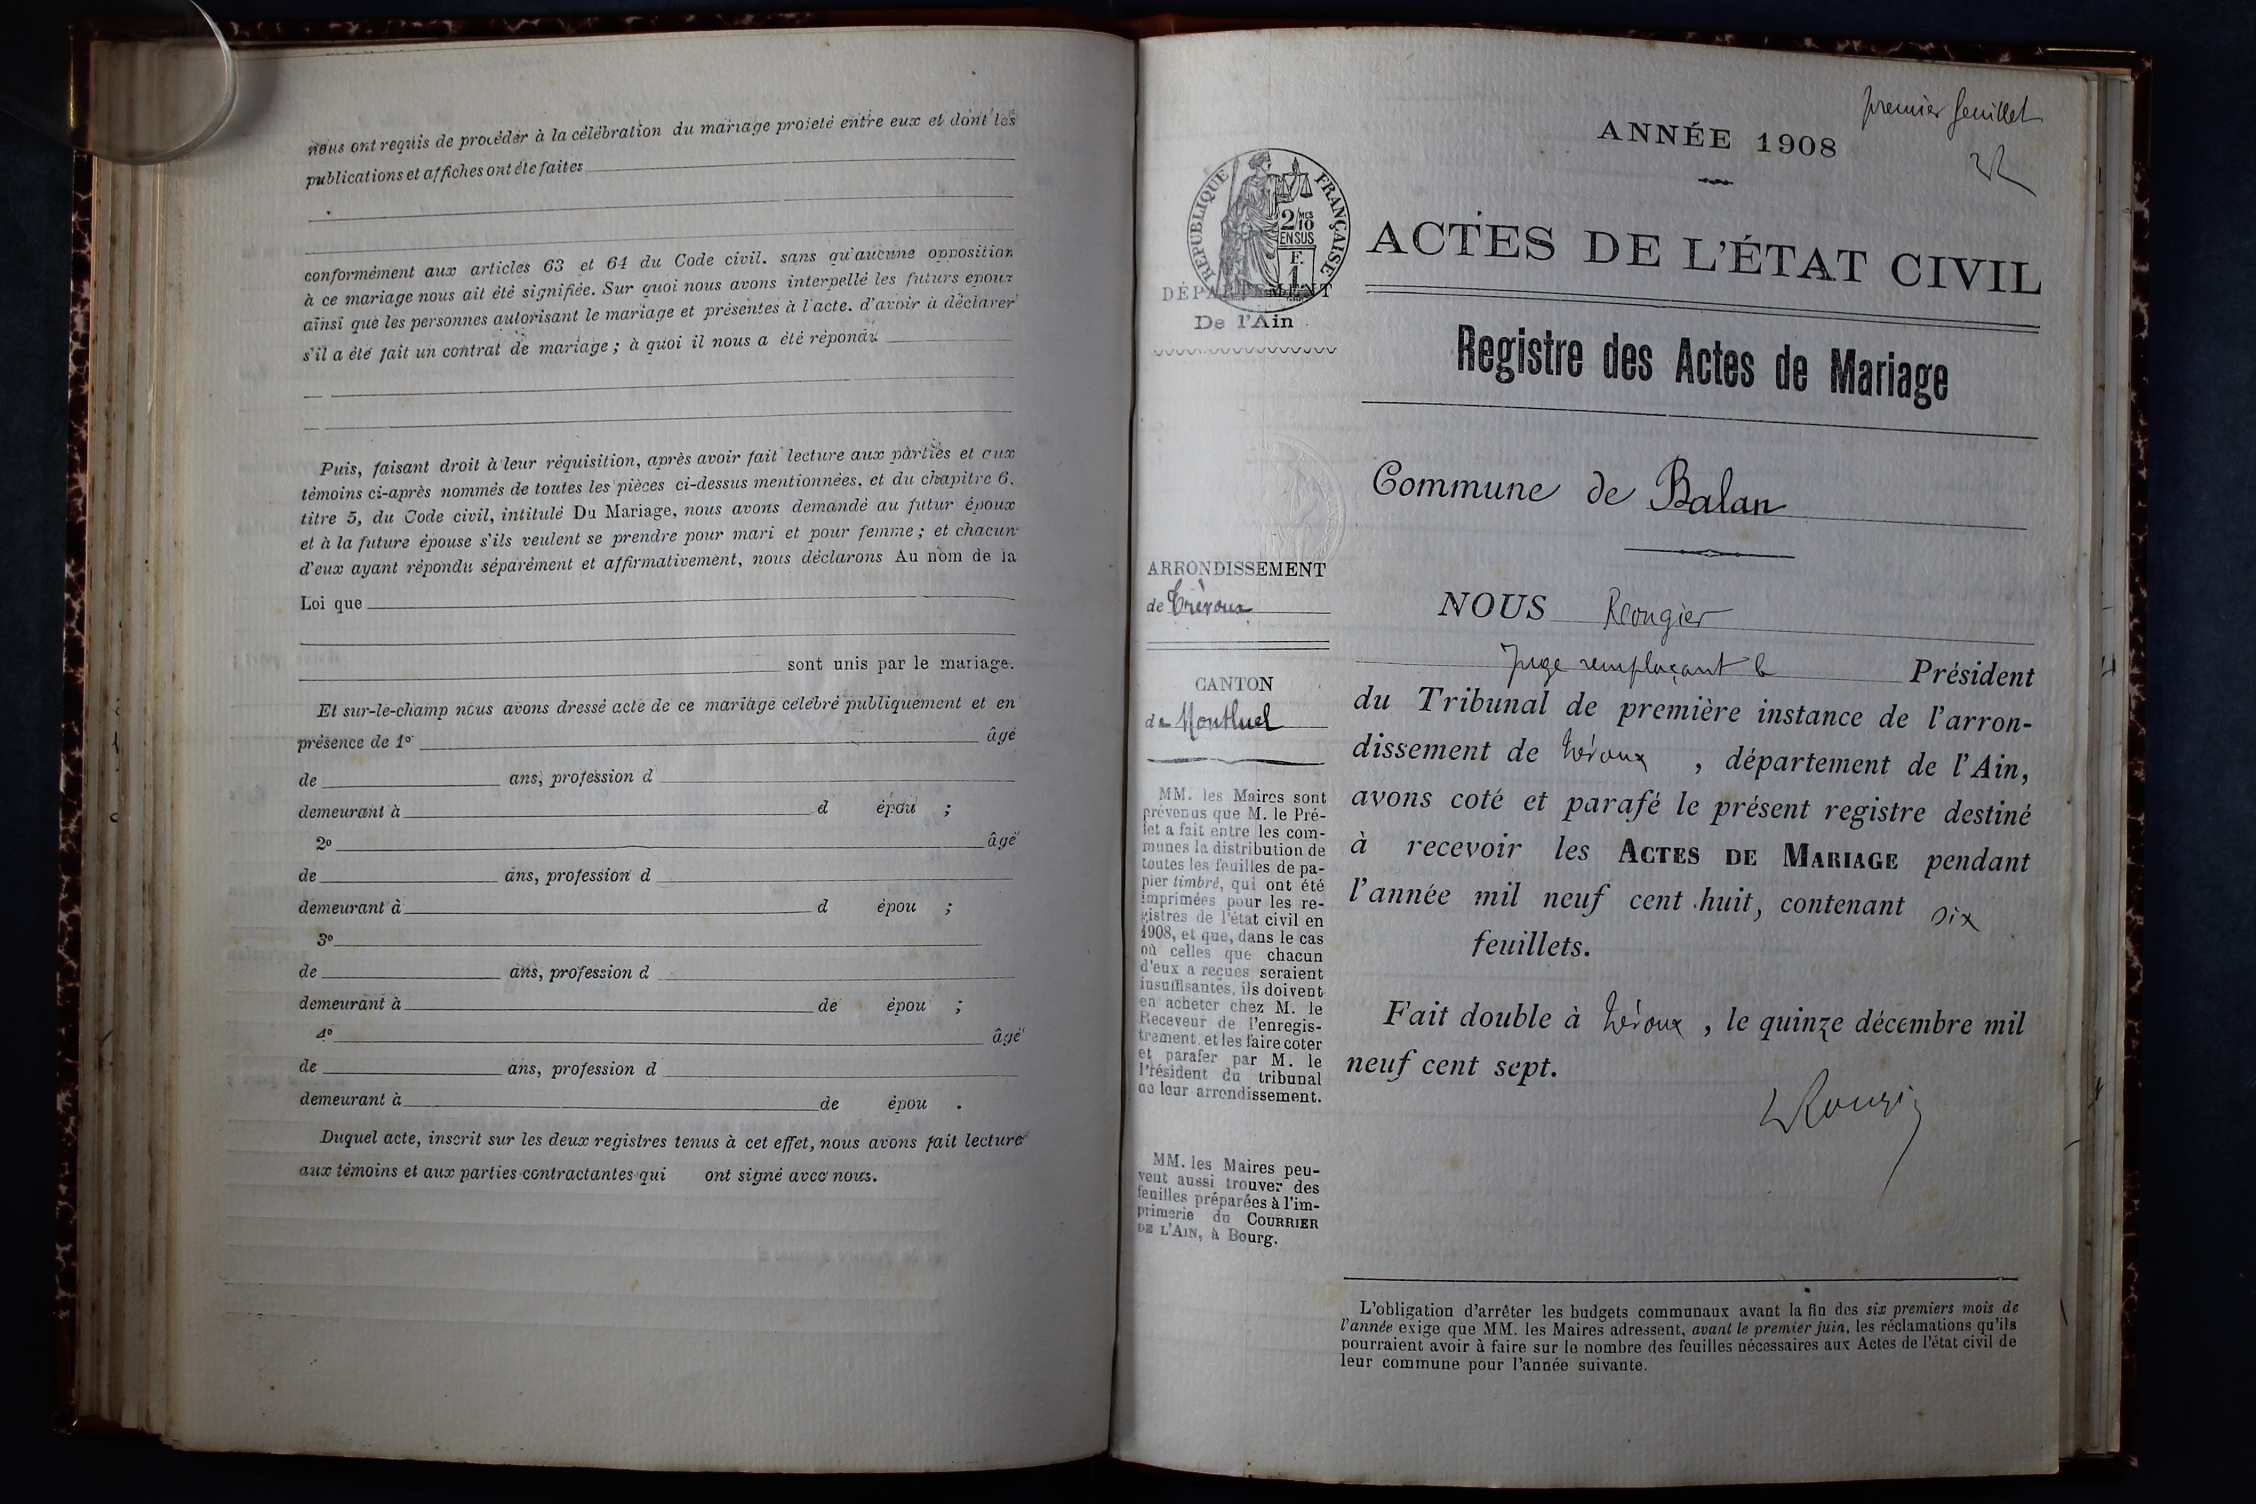 nous ont requis de procéder à la célébration du mariage projeté entre eux et dont les
publications et affiches ont été faites
conformément aux articles 63 et 64 du Code civil. sans qu'aucune opposition
à ce mariage nous ait été signifiée. Sur quoi nous avons interpellé les futurs époux
ainsi que les personnes autorisant le mariage et présentes à l'acte. d'avoir à déclarer
s'il a été fait un contrat de mariage ; à quoi il nous a été répondu
Puis, faisant droit à leur réquisition, après avoir fait lecture aux parties et aux
témoins ci-après nommés de toutes les pièces ci-dessus mentionnées, et du chapitre 6.
titre 5, du Code civil, intitulé Du Mariage, nous avons demandé au futur époux
et à la future épouse s'ils veulent se prendre pour mari et pour femme ; et chacun
d'eux ayant répondu séparément et affirmativement, nous déclarons Au nom de la
Loi que
sont unis par le mariage.
Et sur-le-champ nous avons dressé acte de ce mariage célébré publiquement et en
présence de 1º âgé
de ans, profession d
demeurant à d épou ;
2º âgé
de ans, profession d
demeurant à d épou ;
3º
de ans, profession d
demeurant à de épou ;
4º âgé
de ans, profession d
demeurant à de épou .
Duquel acte, inscrit sur les deux registres tenus à cet effet, nous avons fait lecture
aux témoins et aux parties contractantes qui ont signé avec nous.
premier feuillet
ANNÉE 1908
RÉPUBLIQUE FRANÇAISE
2/10 MES
EN SUS
F.
1.
ACTES DE L'ÉTAT CIVIL
DÉPARTEMENT
De l'Ain
Registre des Actes de Mariage
Commune de Balan
ARRONDISSEMENT
de Trévoux
CANTON
de Montluel
MM. les Maires sont
prévenus que M. le Pré-
fet a fait entre les com-
munes la distribution de
toutes les feuilles de pa-
pier timbré, qui ont été
imprimées pour les re-
gistres de l'état civil en
1908, et que, dans le cas
où celles que chacun
d'eux a reçues seraient
insuffisantes, ils doivent
en acheter chez M. le
Receveur de l'enregis-
trement et les faire coter
et parafer par M. le
Président du tribunal
de leur arrondissement.
MM. les Maires peu-
vent aussi trouver des
feuilles préparées à l'im-
primerie du COURRIER
DE L'AIN, à Bourg.
NOUS Rougier
Juge remplaçant le Président
du Tribunal de première instance de l'arron-
dissement de Trévoux , département de l'Ain,
avons coté et parafé le présent registre destiné
à recevoir les ACTES DE MARIAGE pendant
l'année mil neuf cent huit, contenant six
feuillets.
Fait double à Trévoux , le quinze décembre mil
neuf cent sept.
L'obligation d'arrêter les budgets communaux avant la fin des six premiers mois de
l'année exige que MM. les Maires adressent, avant le premier juin, les réclamations qu'ils
pourraient avoir à faire sur le nombre des feuilles nécessaires aux Actes de l'état civil de
leur commune pour l'année suivante.